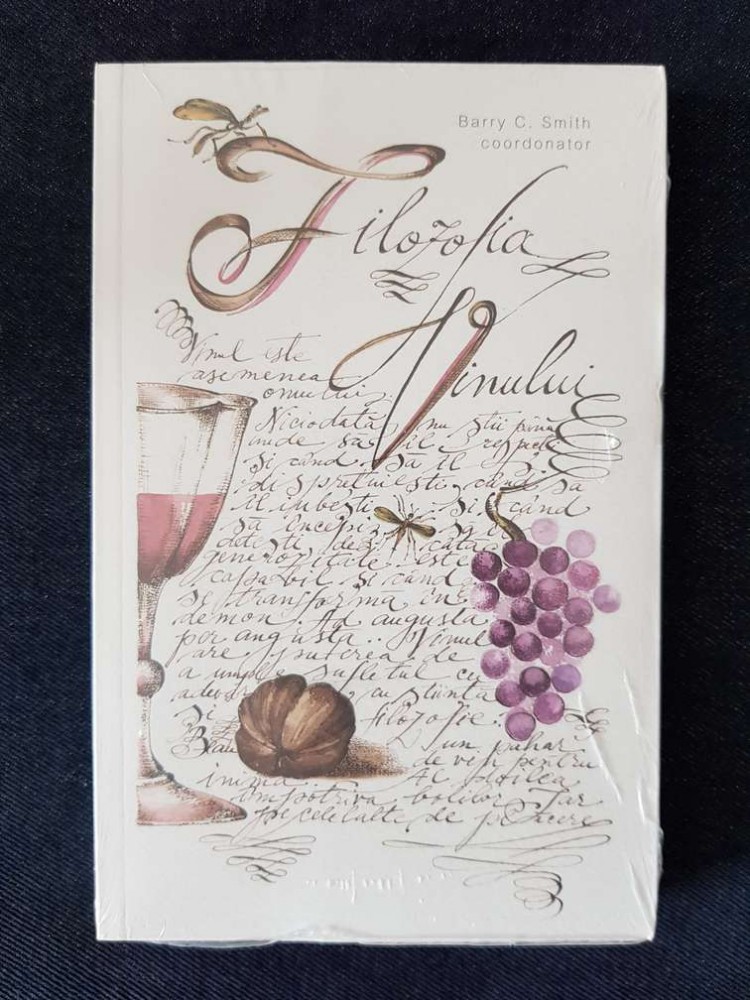 Barry C. Smith
coordonator
Filozofia
Vinului
Vinul este
asemenea
omului.
Niciodată nu știi până
unde să il respecți
și când să il
disprețuiești, când să
il iubești și când
să începi să il
detești, de câtă
generozitate este
capabil și când
se transformă în
demon. Ad augusta
per angusta.. Vinul
are puterea de
a umple sufletul cu
adevăr, cu știință
și filozofie.
Beau un pahar
de vin pentru
inimă. Al doilea
impotriva bolilor. Iar
pe celelalte de plăcere